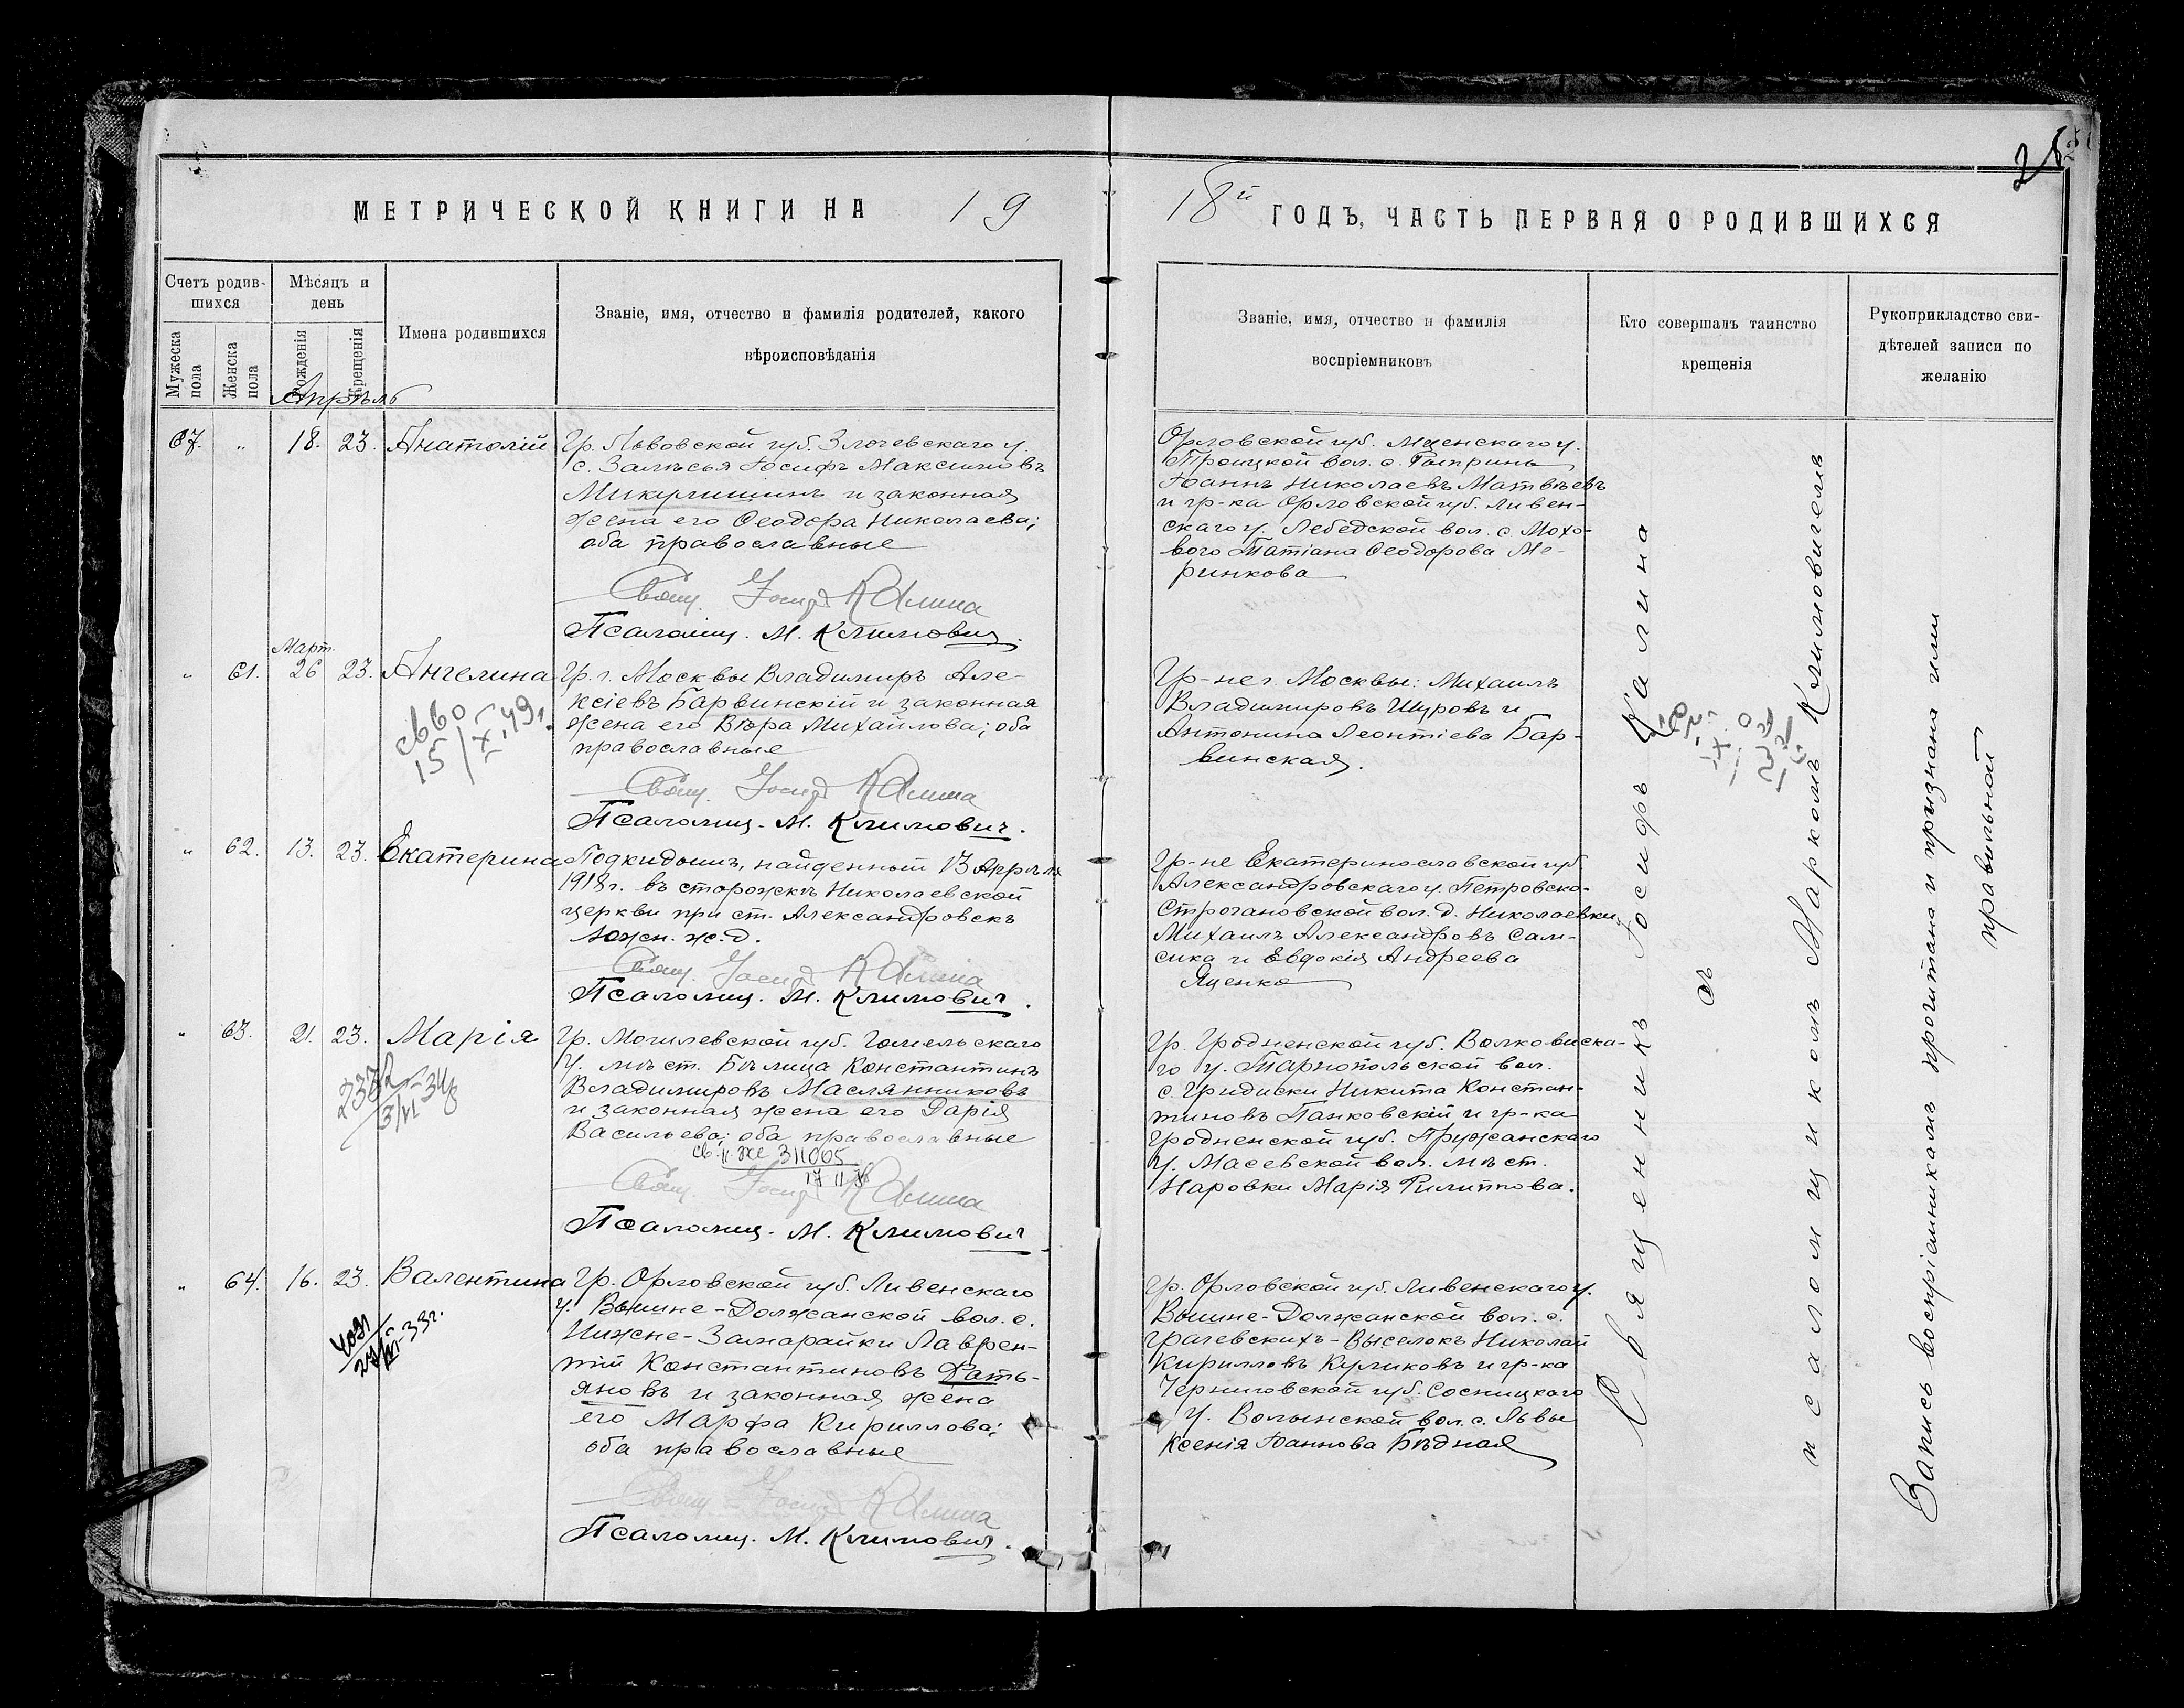 28
МЕТРИЧЕСКОЙ КНИГИ НА 19
18й ГОДЪ, ЧАСТЬ ПЕРВАЯ О РОДИВШИХСЯ
Счетъ родив-
шихся
Мужеска
пола
Женска
пола
Мѣсяцъ и
день
Рожденія
Крещенія
Имена родившихся
Званіе, имя, отчество и фамилія родителей, какого
вѣроисповѣданія
Званіе, имя, отчество и фамилія
воспріемниковъ
Кто совершалъ таинство
крещенія
Рукоприкладство сви-
дѣтелей записи по
желанію
Апрѣль
67. " 18. 23. Анатолій
Гр. Львовской губ. Злочевскаго у.
с. Залѣсья Іосифъ Максимовъ
Микитишинъ и законная
жена его Ѳеодора Николаева;
оба православные
Свящ. Іосифъ Калина
Псаломщ. М. Климович.
Орловской губ. Мценскаго у.
Троицкой вол. с.
Іоаннъ Николаевъ Матвѣевъ
и гр-ка Орловской губ. Ливен-
скаго у. Лебедской вол. с. Мохо-
вого Татіана Ѳеодорова Ме-
ринкова
Март.
" 61. 26 23. Ангелина
св во
15/X 49г.
Гр. г. Москвы Владимиръ Але-
ксіевъ Барвинскій и законная
жена его Вѣра Михайлова; оба
православные
Свящ. Іосифъ Калина
Псаломщ. М. Климович.
Гр-не г. Москвы: Михаилъ
Владимировъ Щуровъ и
Антонина Леонтіева Бар-
винская.
" 62. 13. 23. Екатерина
Подкидышъ, найденный 13 Апрѣля
1918г. въ сторожкѣ Николаевской
церкви при ст. Александровскъ
Южн. ж.д.
Свящ. Іосифъ Калина
Псаломщ. М. Климович.
Гр-не Екатеринославской губ
Александровскаго у. Петровско-
Строгановской вол. д. Николаевки
Михаилъ Александровъ Сам-
сика и Евдокія Андреева
Яценко
" 63. 21. 23. Марія
2372
3/VI-34г
Гр. Могилевской губ. Гомельскаго
у. мѣст. Бѣлица Константинъ
Владимировъ Маслянниковъ
и законная жена его Дарія
Васильева; оба православные
св. II. же 311005
17 II
Свящ Іосифъ Калина
Псаломщ. М. Климович
Гр. Гродненской губ. Волковиска-
го у. Тарнопольской вол.
с. Гридиски Никита Констан-
тиновъ Панковскій и гр-ка
Гродненской губ. Пружанскаго
у. Масевской вол. мѣст.
Наровки Марія Филиппова.
" 64. 16. 23. Валентина
Гр. Орловской губ. Ливенскаго
у. Вышне-Должанской вол. с.
Нижне-Замарайки Лаврен-
тій Константиновъ Дать-
яновъ и законная жена
его Марфа Кириллова;
оба православные
Свящ Іосифъ Калина
Псаломщ. М. Климович.
Гр. Орловской губ. Ливенскаго у.
Вышне-Должанской вол. с.
Грачевскихъ-Выселокъ Николай
Кирилловъ Куликовъ и гр-ка
Черниговской губ. Сосницкаго
у. Волынской вол. с. Львы
Ксенія Іоаннова Бѣдная
Священникъ Іосифъ Калина
съ
псаломщикомъ Маркомъ Климовичемъ
Запись воспріемникамъ прочитана и признана ими
правильной